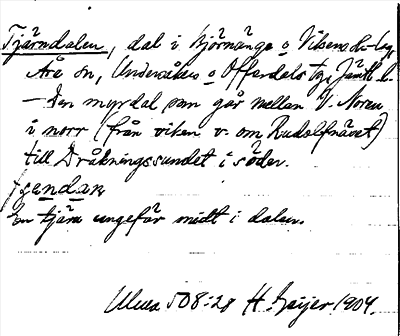 Tjärndalen, dal i Björnänge o Vikens by
Åre sn, Undersåkers o Offerdals tgs Jämtl. l.
— Den myrdal som går mellan V. Noren
i norr (från viken v. om Rudolfnävet)
till Dråkningssundet i söder.
En tjärn ungefär midt i dalen.
Ulma 508:28 H. Geijer 1904.